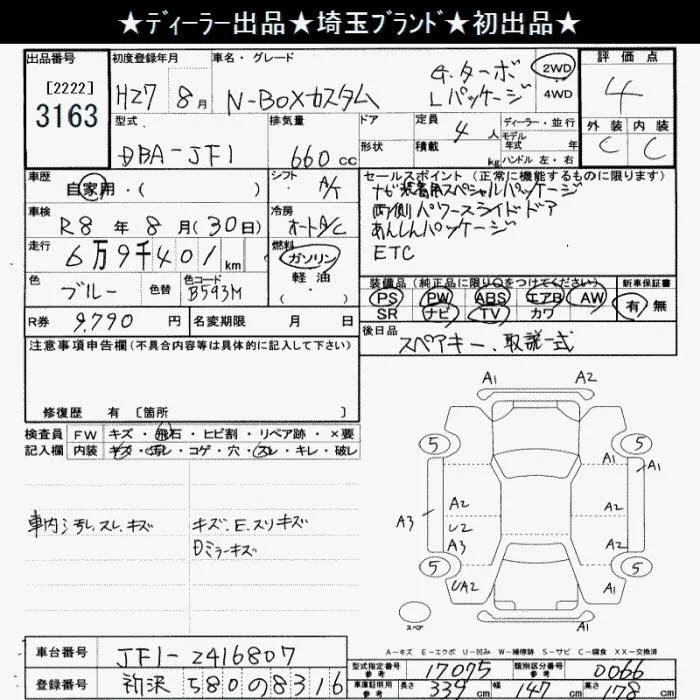 ★ディーラー出品★埼玉ブランド★初出品★
出品番号 [2222] 3163
初度登録年月 H27 8月
車名・グレード N-BOXカスタム G.ターボ Lパッケージ
2WD 4WD
評価点 4
外装 C 内装 C
型式 DBA-JF1
排気量 660cc
ドア 形状
定員 4人
積載 kg
ディーラー・並行
モデル年式 年
ハンドル 左・右
車歴 自家用・( )
シフト A/T
車検 R8年8月(30日)
冷房 オートA/C
走行 6万9千401km
燃料 ガソリン 軽油 ( ・ )
色 ブルー 色替 色コード B593M
R券 9,790円 名変期限 月 日
セールスポイント (正常に機能するものに限ります)
ナビ装着用スペシャルパッケージ
両側パワースライドドア
あんしんパッケージ
ETC
装備品 (純正品に限り○をつけてください)
PS PW ABS エアB AW
SR ナビ TV カワ
新車保証書 有・無
後日品 スペアキー、取説一式
注意事項申告欄(不具合内容等は具体的に記入して下さい)
修復歴 有 [箇所 ]
検査員記入欄
FW キズ・飛石・ヒビ割・リペア跡・×要
内装 キズ・汚レ・コゲ・穴・スレ・キレ・破レ
車内汚レ、スレ、キズ
キズ、E、スリキズ
Dミラーキズ
A1 A2
5 5
A1 A1
A3 A2 U2 A3 A1
5 5
UA2 A2 A1
スペア
A-キズ E-エクボ U-凹み W-補修跡 S-サビ C-腐食 XX-交換済
車台番号 JF1-2416807
登録番号 所沢 580 の 8316
型式指定番号 参考 17075
類別区分番号 参考 0066
車庫証明用 参考 長さ 339cm 幅 147cm 高さ 178cm